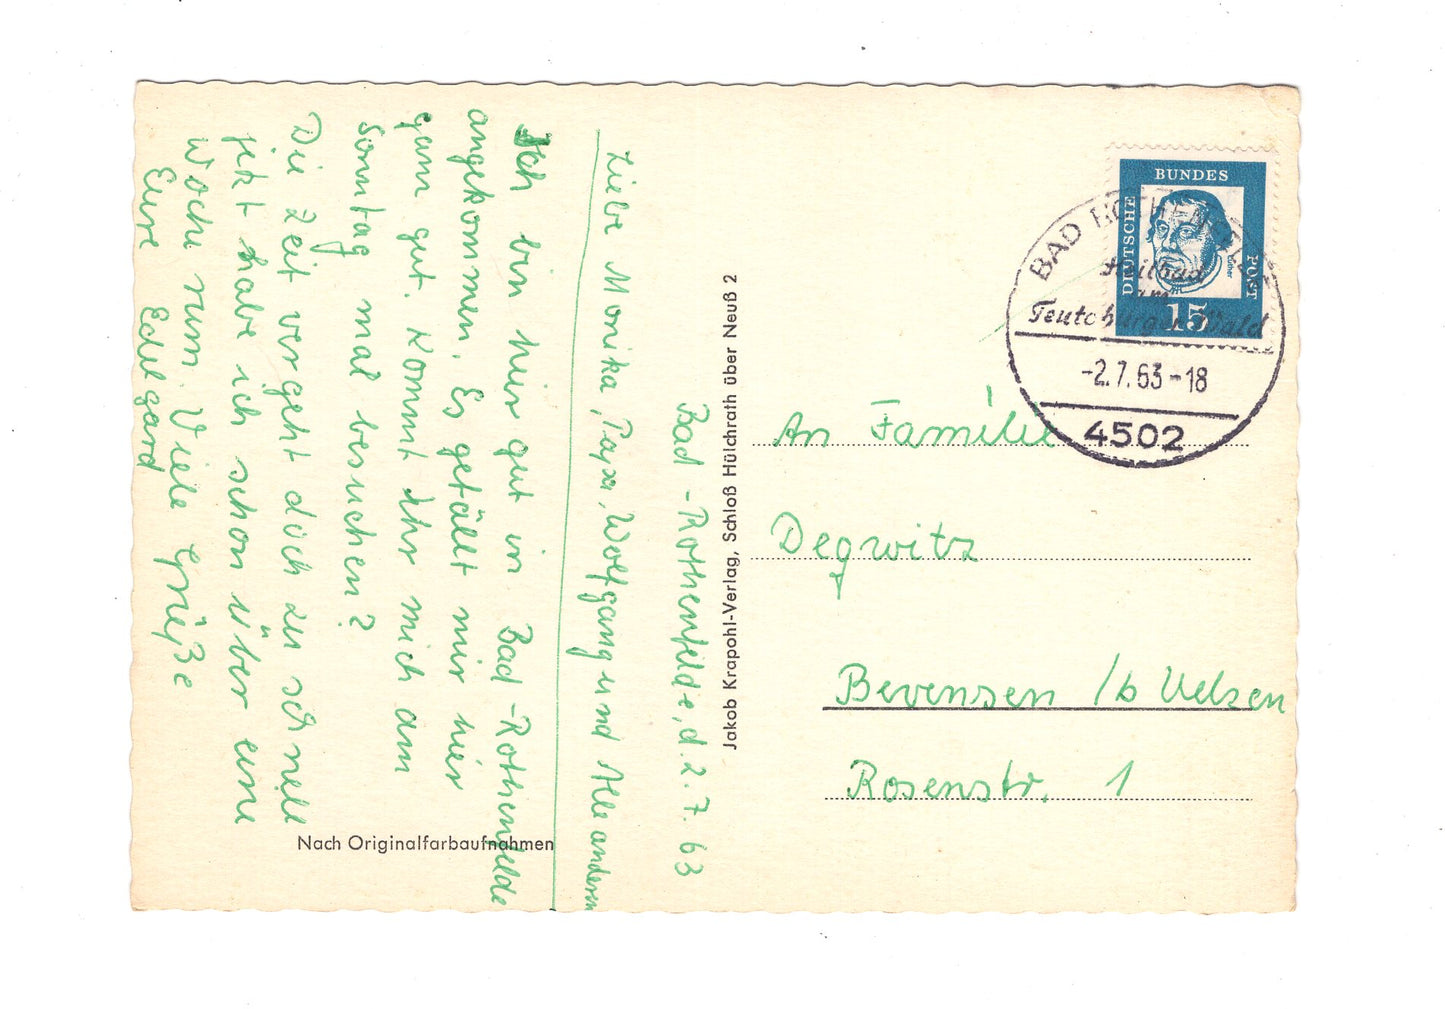 Bad-Rothenfelde, d. 2.7.63
Liebe Monika, Papa, Wolfgang und Alle anderen
Ich bin hier gut in Bad-Rothenfelde
angekommen. Es gefällt mir hier
ganz gut. Kommt Ihr mich am
Sonntag mal besuchen?
Die Zeit vergeht doch zu schnell
jetzt habe ich schon über eine
Woche rum. Viele Grüße
Eure Edelgard
Nach Originalfarbaufnahmen
Jakob Krapohl-Verlag, Schloß Hülchrath über Neuß 2
DEUTSCHE
BUNDES
POST
Luther
15
BAD ROTHENFELDE
Heilbad
am
Teutoburger Wald
-2.7.63-18
4502
An Familie
Degwitz
Bevensen /b Uelzen
Rosenstr. 1